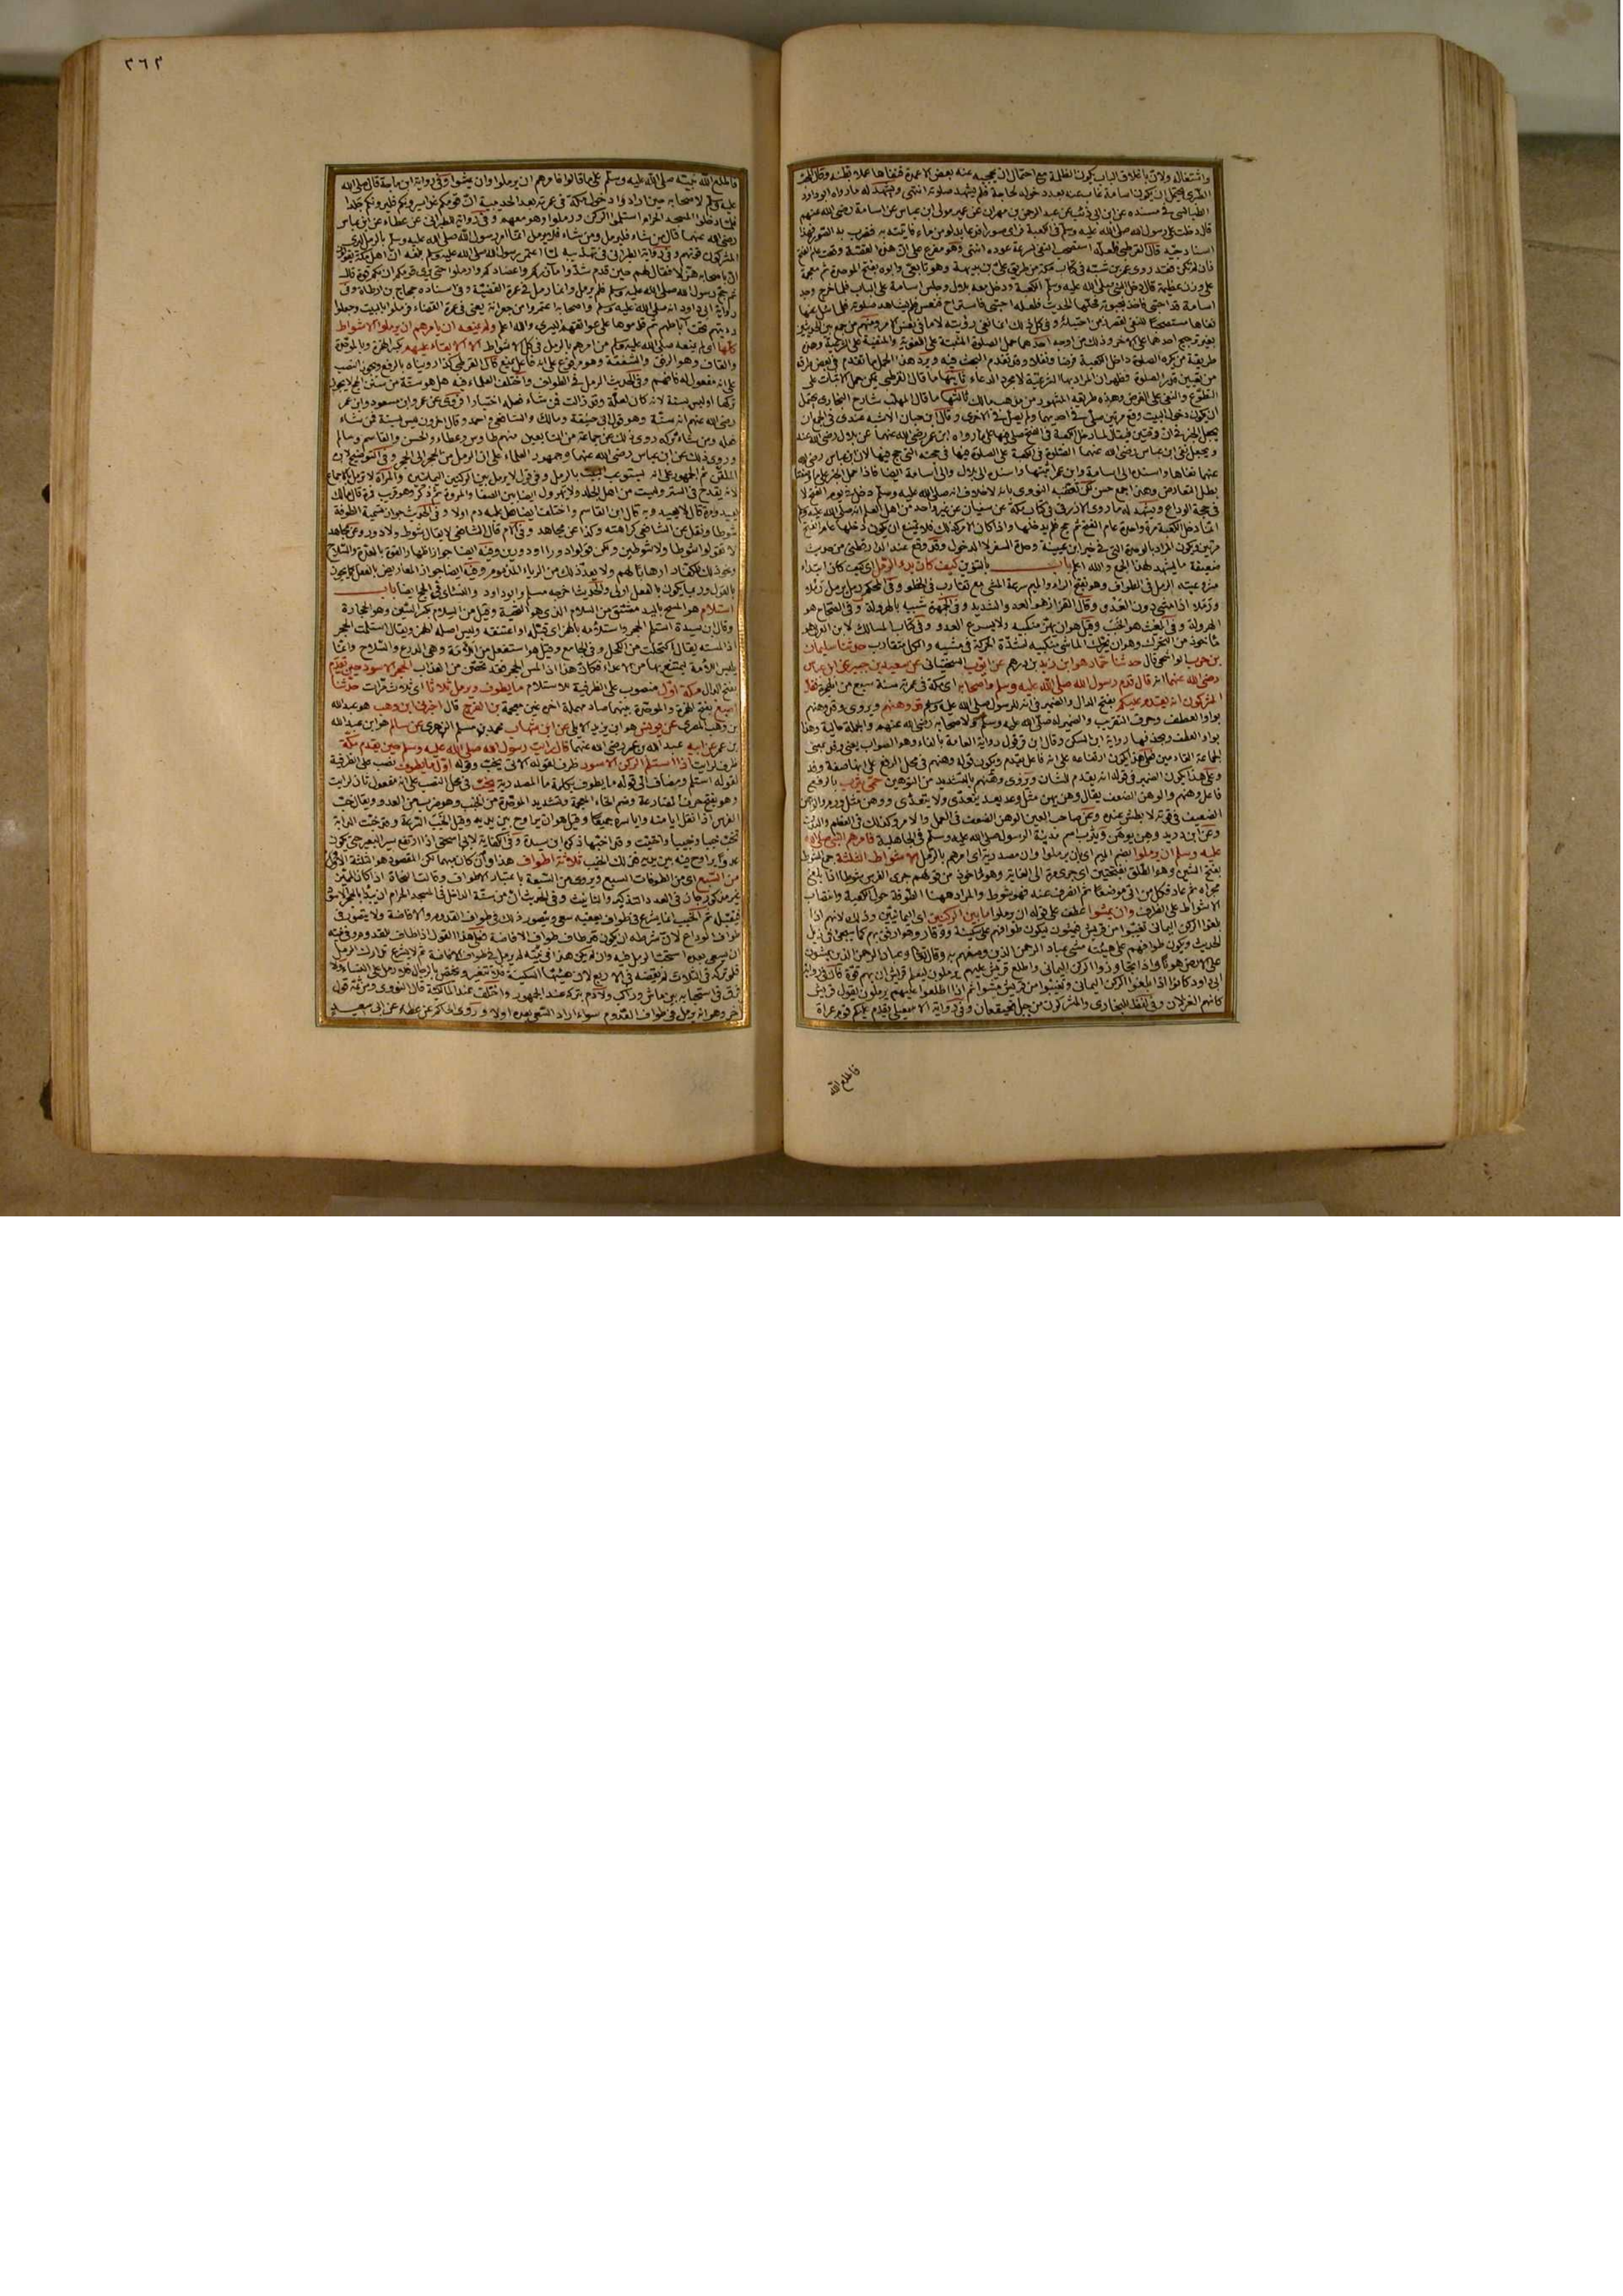 واشتغاله ولان باغلاق الباب يكون الظلمة مع احتمال ان يحجبه عنه بعض الاعمدة فنفاها عملا بظنه وقال المحب
الطبري يحتمل ان يكون اسامة غاب عنه بعد دخوله لحاجة فلم يشهد صلوته انتهى ويشهد له ما رواه ابو داود
الطيالسي في مسنده عن ابن ابي ذئب عن عبد الرحمن بن مهران عن عمير مولى ابن عباس عن اسامة رضي الله عنهم
قال دخلت على رسول الله صلى الله عليه وسلم في الكعبة فراى صورا فدعا بدلو من ماء فاتيته به فضرب به الصور فهذا
اسناد جيد قال القرطبي فلعله استصحب النفي لسرعة عوده انتهى وهو مفرع على ان هذه القصة وقعت عام الفتح
فان لم يكن فقد روى عمر بن شبة في كتاب مكة من طريق علي بن بذيمة وهو تابعي وابوه بفتح الموحدة ثم معجمة
على وزن عظيمة قال دخل النبي صلى الله عليه وسلم الكعبة ودخل معه بلال وجلس اسامة على الباب فلما خرج وجد
اسامة قد احتبى فاخذ بحبوته فحلها الحديث فلعله احتبى فاستراح فنعس فلم يشاهد صلوته فلما سئل عنها
نفاها مستصحبا للنفي لقصر زمن احتبائه وفي كل ذلك انما نفى رؤيته لا ما في نفس الامر ومنهم من جمع بين الحديثين
بغير ترجيح احدهما على الاخر وذلك من اوجه احدها حمل الصلوة المثبتة على اللغوية والمنفية على الشرعية وهذه
طريقة من يكره الصلوة داخل الكعبة فرضا ونفلا وقد تقدم البحث فيه ويرد هذا الحمل ما تقدم في بعض طرقه
من تعيين قدر الصلوة فظهر ان المراد بها الشرعية لا مجرد الدعاء ثانيها ما قال القرطبي يمكن حمل الاثبات على
التطوع والنفي على الفرض وهذه طريقة المشهور من مذهب مالك ثالثها ما قال المهلب شارح البخاري يحتمل
ان يكون دخول البيت وقع مرتين صلى في احديهما ولم يصل في الاخرى وقال ابن حبان الاشبه عندي في الجمع ان
يجعل الخبرين في وقتين فيقال لما دخل الكعبة في الفتح صلى فيها على ما رواه ابن عمر رضي الله عنهما عن بلال رضي الله عنه
ويجعل نفي ابن عباس رضي الله عنهما الصلوة في الكعبة على الصلوة فيها في حجته التي حج فيها لان ابن عباس رضي الله
عنهما نفاها واسنده الى اسامة وابن عمر اثبتها واسنده الى بلال والى اسامة ايضا فاذا حمل الخبر على ما وصفنا
بطل التعارض وهذا جمع حسن لكن تعقبه النووي بانه لا خلاف انه صلى الله عليه وسلم دخل في يوم الفتح لا
في حجة الوداع ويشهد له ما روى الازرقي في كتاب مكة عن سفيان عن غير واحد من اهل العلم انه صلى الله عليه وسلم
انما دخل الكعبة مرة واحدة عام الفتح ثم حج فلم يدخلها واذا كان الامر كذلك فلا يمتنع ان يكون دخلها عام الفتح
مرتين ويكون المراد بالوحدة التي في خبر ابن عيينة وحدة السفر لا الدخول وقد وقع عند الدارقطني من طريق
ضعيفة ما يشهد لهذا الجمع والله اعلم باب بالتنوين كيف كان بدو الرمل اي كيف كان ابتداء
مشروعيته الرمل في الطواف وهو بفتح الراء والميم سرعة المشي مع تقارب في الخطو وفي المحكم رمل يرمل رملا
ورملا اذا مشى دون العدو وقال القزاز هو العدو الشديد وفي الجمهرة شبيه بالهرولة وفي الصحاح هو
الهرولة وفي المغيث هو الخبب وقيل هو ان يهز منكبيه ولا يسرع العدو وفي كتاب المسالك لابن العربي هو
ماخوذ من التحرك وهو ان يحرك الماشي منكبيه لشدة الحركة في مشيه والكل متقارب حدثنا سليمان
بن حرب الواشحي قال حدثنا حماد هو ابن زيد بن درهم عن ايوب السختياني عن سعيد بن جبير عن ابن عباس
رضي الله عنهما انه قال قدم رسول الله صلى الله عليه وسلم واصحابه اي مكة في عمرته سنة سبع من الهجرة فقال
المشركون انه يقدم عليكم بفتح الدال والضمير في انه للرسول صلى الله عليه وسلم قد وهنهم ويروى وقد وهنهم
بواو العطف وحرف التقريب والضمير له صلى الله عليه وسلم ولاصحابه رضي الله عنهم والجملة حالية وهذا
بواو العطف وبحذفها رواية ابن السكن وقال ابن قرقول رواية العامة بالفاء وهو الصواب يعني وفد بمعنى
الجماعة القادمين فعلى هذا يكون ارتفاعه على انه فاعل يقدم ويكون قوله وهنهم في محل الرفع على انها صفة وفد
وعلى هذا يكون الضمير في قوله انه يقدم للشان ويروى وهنتهم بالتشديد من التوهين حمى يثرب بالرفع
فاعل وهنهم والوهن الضعف يقال وهن يهن مثل وعد يعد يتعدى ولا يتعدى ووهن مثل ورم
الضعيف في قوته لا بطش عنده وعن صاحب العين الوهن الضعف في العمل والامر وكذلك في العظم
وعن ابن دريد وهن يوهن ويثرب اسم مدينة الرسول صلى الله عليه وسلم في الجاهلية فامرهم النبي صلى الله
عليه وسلم ان يرملوا بضم الميم اي بان يرملوا وان مصدرية اي امرهم بالرمل الاشواط الثلثة جمع الشوط
بفتح الشين وهو الطلق بفتحتين اي جرى مرة الى الغاية وهو ماخوذ من قولهم جرى الفرس شوطا اذا بلغ
مجراه ثم عاد فكل من اتى موضعا ثم انصرف عنه فهو شوط والمراد ههنا الطوفة حول الكعبة وانتصاب
الاشواط على الظرف وان يمشوا عطف على قوله ان يرملوا ما بين الركنين اي اليمانيين وذلك لانهم اذا
بلغوا الركن اليماني تغيبوا من قريش فيمشون ليكون طوافهم على سكينة ووقار وهو ارفق بهم كما سيجئ في ذيل
الحديث ويكون طوافهم على هيئة مشي عباد الرحمن الذين وصفهم به وقال تعالى وعباد الرحمن الذين يمشون
على الارض هونا واذا تجاوزوا الركن اليماني واطلع قريش عليهم يرملون ليعلم قريش ان بهم قوة قال في رواية
ابي داود كانوا اذا بلغوا الركن اليماني وتغيبوا من قريش مشوا ثم اذا اطلعوا عليهم يرملون تقول قريش
كانهم الغزلان وفي لفظ للبخاري والمشركون من جبل قعيقعان وفي رواية الاسمعيلي يقدم عليكم قوم عراة
فاطلع الله
٣٦٣
فاطلع الله نبيه صلى الله عليه وسلم على ما قالوا فامرهم ان يرملوا وان يمشوا وفي رواية ابن ماجة قال صلى الله
عليه وسلم لاصحابه حين ارادوا دخول مكة في عمرته بعد الحديبية ان قومكم غدا سيرونكم فليرونكم جلدا
فلما دخلوا المسجد الحرام استلموا الركن ورملوا وهو معهم وفي رواية للطبراني عن عطاء عن ابن عباس
رضي الله عنهما قال من شاء فليرمل ومن شاء فلا يرمل انما امر رسول الله صلى الله عليه وسلم بالرمل ليرى
المشركون قوتهم وفي رواية الطبراني في تهذيبه لما اعتمر رسول الله صلى الله عليه وسلم بلغه ان اهل مكة يقولون
ان باصحابه هزلا فقال لهم حين قدم شدوا مآزركم واعضادكم وارملوا حتى يرى قومكم ان بكم قوة قال
ثم حج رسول الله صلى الله عليه وسلم فلم يرمل وانما رمل في عمرة القضية وفي اسناده حجاج بن ارطاة وفي
رواية ابي داود انه صلى الله عليه وسلم واصحابه اعتمروا من جعرانة يعني في عمرة القضاء فرملوا بالبيت وجعلوا
ارديتهم تحت آباطهم ثم قذفوها على عواتقهم اليسرى والله اعلم ولم يمنعه ان يامرهم ان يرملوا الاشواط
كلها اي لم يمنعه صلى الله عليه وسلم من امرهم بالرمل في كل الاشواط الا الابقاء عليهم بكسر الهمزة وبالموحدة
والقاف وهو الرفق والشفقة وهو مرفوع على انه فاعل يمنع قال القرطبي كذا رويناه بالرفع ويجوز النصب
على انه مفعول له وفي الحديث الرمل في الطواف واختلف العلماء فيه هل هو سنة من سنن الحج لا يجوز
تركها او ليس بسنة لانه كان لعلة وقد زالت فمن شاء فعله اختيارا فروي عن عمر وابن مسعود وابن عمر
رضي الله عنهم انه سنة وهو قول ابي حنيفة ومالك والشافعي واحمد وقال اخرون ليس بسنة فمن شاء
فعله ومن شاء تركه روي ذلك عن جماعة من التابعين منهم طاوس وعطاء والحسن والقاسم وسالم
وروي ذلك عن ابن عباس رضي الله عنهما وجمهور العلماء على ان الرمل من الحجر الى الحجر وفي التوضيح لابن
الملقن ثم الجمهور على انه يستوعب البيت بالرمل وفي قول لا يرمل بين الركنين اليمانيين والمراة لا ترمل بالاجماع
لانه يقدح في الستر وليست من اهل الجلد ولا تهرول ايضا بين الصفا والمروة
يعيد ومرة قال لا يعيد وبه قال ابن القاسم واختلف ايضا هل عليه دم او لا وفي الحديث جواز تسمية الطوفة
شوطا ونقل عن الشافعي كراهته وكذا عن مجاهد وفي الام قال الشافعي لا يقال شوط ولا دور وعن مجاهد
لا تقولوا شوطا ولا شوطين ولكن قولوا دورا او دورين وفيه ايضا جواز اظهار القوة بالعدة والسلاح
ونحو ذلك للكفار ارهابا لهم ولا يعد ذلك من الرياء المذموم وفيه ايضا جواز المعاريض بالفعل كما يجوز
بالقول وربما يكون بالفعل اولى والحديث اخرجه مسلم وابو داود والنسائي في الحج ايضا باب
استلام هو المسح باليد مشتق من السلام الذي هو التحية وقيل من السلام بكسر السين وهو الحجارة
وقال ابن سيدة استلم الحجر واستلأمه بالهمز اي قبله او اعتنقه وليس اصله الهمز ويقال استلمت الحجر
اذا لمسته كما يقال اكتحلت من الكحل وفي الجامع وقيل هو استفعل من اللأمة وهي الدرع والسلاح وانما
يلبس اللأمة ليمتنع بها من الاعداء فكان هذا اذا لمس الحجر فقد تحصن من العذاب الحجر الاسود حين يقدم
بفتح الدال مكة اول منصوب على الظرفية للاستلام ما يطوف ويرمل ثلاثا اي ثلاث مرات حدثنا
اصبغ بفتح الهمزة والموحدة بينهما صاد مهملة اخره غين معجمة بن الفرج قال اخبرني ابن وهب هو عبد الله
بن وهب المصري عن يونس هو ابن يزيد الايلي عن ابن شهاب محمد بن مسلم الزهري عن سالم هو ابن عبد الله
بن عمر عن ابيه عبد الله بن عمر رضي الله عنهما قال رايت رسول الله صلى الله عليه وسلم حين يقدم مكة
ظرف لرايت اذا استلم الركن الاسود ظرف لقوله الاتي يخب وقوله اول ما يطوف نصب على الظرفية
لقوله استلم ومضاف الى قوله ما يطوف بكلمة ما المصدرية يخب في محل النصب على انه مفعول ثان لرايت
وهو بفتح حرف المضارعة وضم الخاء المعجمة وتشديد الموحدة من الخبب وهو ضرب من العدو ويقال خبت
الفرس اذا نقل ايامنه واياسره جميعا وقيل هو ان يراوح بين يديه وقيل الخبب السرعة وقد خبت الدابة
تخب خببا وخبيبا واختبت وقد اخبها ذكره ابن سيدة وفي الكفاية لابي اسحق اذا ارتفع سير البعير حتى يكون
عدوا يراوح فيه بين يديه فذلك الخبب ثلاثة اطواف هذا وان كان مبهما لكن المقصود هو الثلثة الاول
من السبع اي من الطوفات السبع ويروى من السبعة باعتبار الاطواف وقالت النحاة اذا كان المميز
غير مذكور جاز في العدد التذكير والتانيث وفي الحديث ان من سنة الداخل في المسجد الحرام ان يبدأ بالحجر الاسود
فيقبله ثم الخبب انما يشرع في طواف يعقبه سعي ويتصور ذلك في طواف القدوم والافاضة ولا يتصور في
طواف الوداع لان شرطه ان يكون قد طاف طواف الافاضة فعلى هذا القول اذا طاف للقدوم وفي نيته
ان يسعى بعده استحب الرمل فيه وان لم يكن هذا في نيته لم يرمل فيه بل في طواف الافاضة ثم لا يشرع تدارك الرمل
فلو تركه في الثلاث لم يقضه في الاربع لان هيئتها السكينة فلا تتغير ويختص بالرجال فلا رمل على النساء ولا
فرق في استحبابه بين ماش وراكب ولا دم بتركه عند الجمهور واختلف عند المالكية قال النووي وثمة قول
اخر وهو انه يرمل في طواف القدوم سواء اراد السعي بعده اولا وروى الحاكم عن عطاء عن ابي سعيد